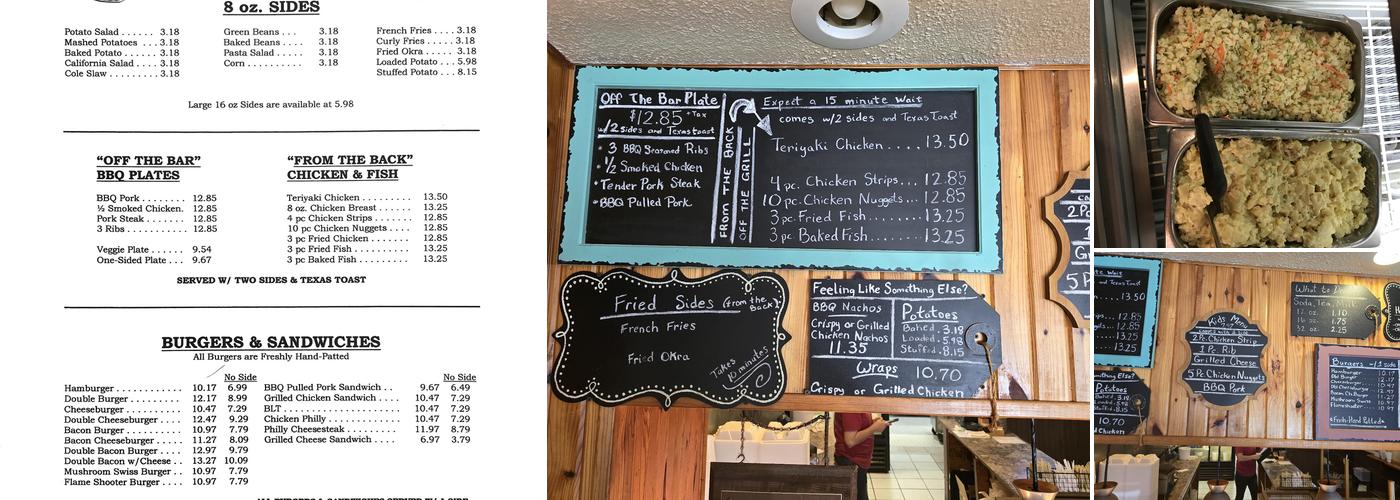 8 oz. SIDES
Potato Salad . . . . . . 3.18
Mashed Potatoes . . . 3.18
Baked Potato . . . . . . 3.18
California Salad . . . . 3.18
Cole Slaw . . . . . . . . . 3.18
Green Beans . . . 3.18
Baked Beans . . . 3.18
Pasta Salad . . . . 3.18
Corn . . . . . . . . . . 3.18
French Fries . . . . 3.18
Curly Fries . . . . . 3.18
Fried Okra . . . . . 3.18
Loaded Potato . . . 5.98
Stuffed Potato . . . 8.15
Large 16 oz Sides are available at 5.98
"OFF THE BAR"
BBQ PLATES
BBQ Pork . . . . . . . . 12.85
½ Smoked Chicken. 12.85
Pork Steak . . . . . . . 12.85
3 Ribs . . . . . . . . . . . 12.85
Veggie Plate . . . . 9.54
One-Sided Plate . . . 9.67
"FROM THE BACK"
CHICKEN & FISH
Teriyaki Chicken . . . . . . . . . 13.50
8 oz. Chicken Breast . . . . . . . 13.25
4 pc Chicken Strips . . . . . . . . 12.85
10 pc Chicken Nuggets . . . . . 12.85
3 pc Fried Chicken . . . . . . . . 12.85
3 pc Fried Fish . . . . . . . . . . . 13.25
3 pc Baked Fish . . . . . . . . . . 13.25
SERVED W/ TWO SIDES & TEXAS TOAST
BURGERS & SANDWICHES
All Burgers are Freshly Hand-Patted
No Side
Hamburger . . . . . . . . . . . . 10.17 6.99
Double Burger . . . . . . . . . 12.17 8.99
Cheeseburger . . . . . . . . . . 10.47 7.29
Double Cheeseburger . . . . 12.47 9.29
Bacon Burger . . . . . . . . . . 10.97 7.79
Bacon Cheeseburger . . . . . 11.27 8.09
Double Bacon Burger . . . . 12.97 9.79
Double Bacon w/Cheese . . 13.27 10.09
Mushroom Swiss Burger . . 10.97 7.79
Flame Shooter Burger . . . . 10.97 7.79
No Side
BBQ Pulled Pork Sandwich . . 9.67 6.49
Grilled Chicken Sandwich . . . . 10.47 7.29
BLT . . . . . . . . . . . . . . . . . 10.47 7.29
Chicken Philly . . . . . . . . . . 10.47 7.29
Philly Cheesesteak . . . . . . . 11.97 8.79
Grilled Cheese Sandwich . . . . 6.97 3.79
Off The Bar Plate
$12.85 + Tax
w/2 sides and Texas toast
• 3 BBQ Seasoned Ribs
• 1/2 Smoked Chicken
• Tender Pork Steak
• BBQ Pulled Pork
FROM THE BACK
OFF THE GRILL
Expect a 15 minute Wait
comes w/2 sides and Texas Toast
Teriyaki Chicken . . . . 13.50
4 pc. Chicken Strips... 12.85
10 pc. Chicken Nuggets... 12.85
3 pc. Fried Fish........ 13.25
3 pc. Baked Fish........ 13.25
Fried Sides (from the Back)
French Fries
Fried Okra
Takes 10 minutes
Feeling Like Something Else?
BBQ Nachos
Crispy or Grilled
Chicken Nachos
11.35
Potatoes
Baked . 3.18
Loaded . 5.98
Stuffed . 8.15
Wraps 10.70
Crispy or Grilled Chicken
Kids Menu
2 Pc. Chicken Strip
1 Pc. Rib
Grilled Cheese
5 Pc Chicken Nuggets
BBQ Pork
What to Drink
Soda, Tea, Milk
12 oz. 1.10
16 oz. 1.75
32 oz. 2.25
Burgers w/1 side